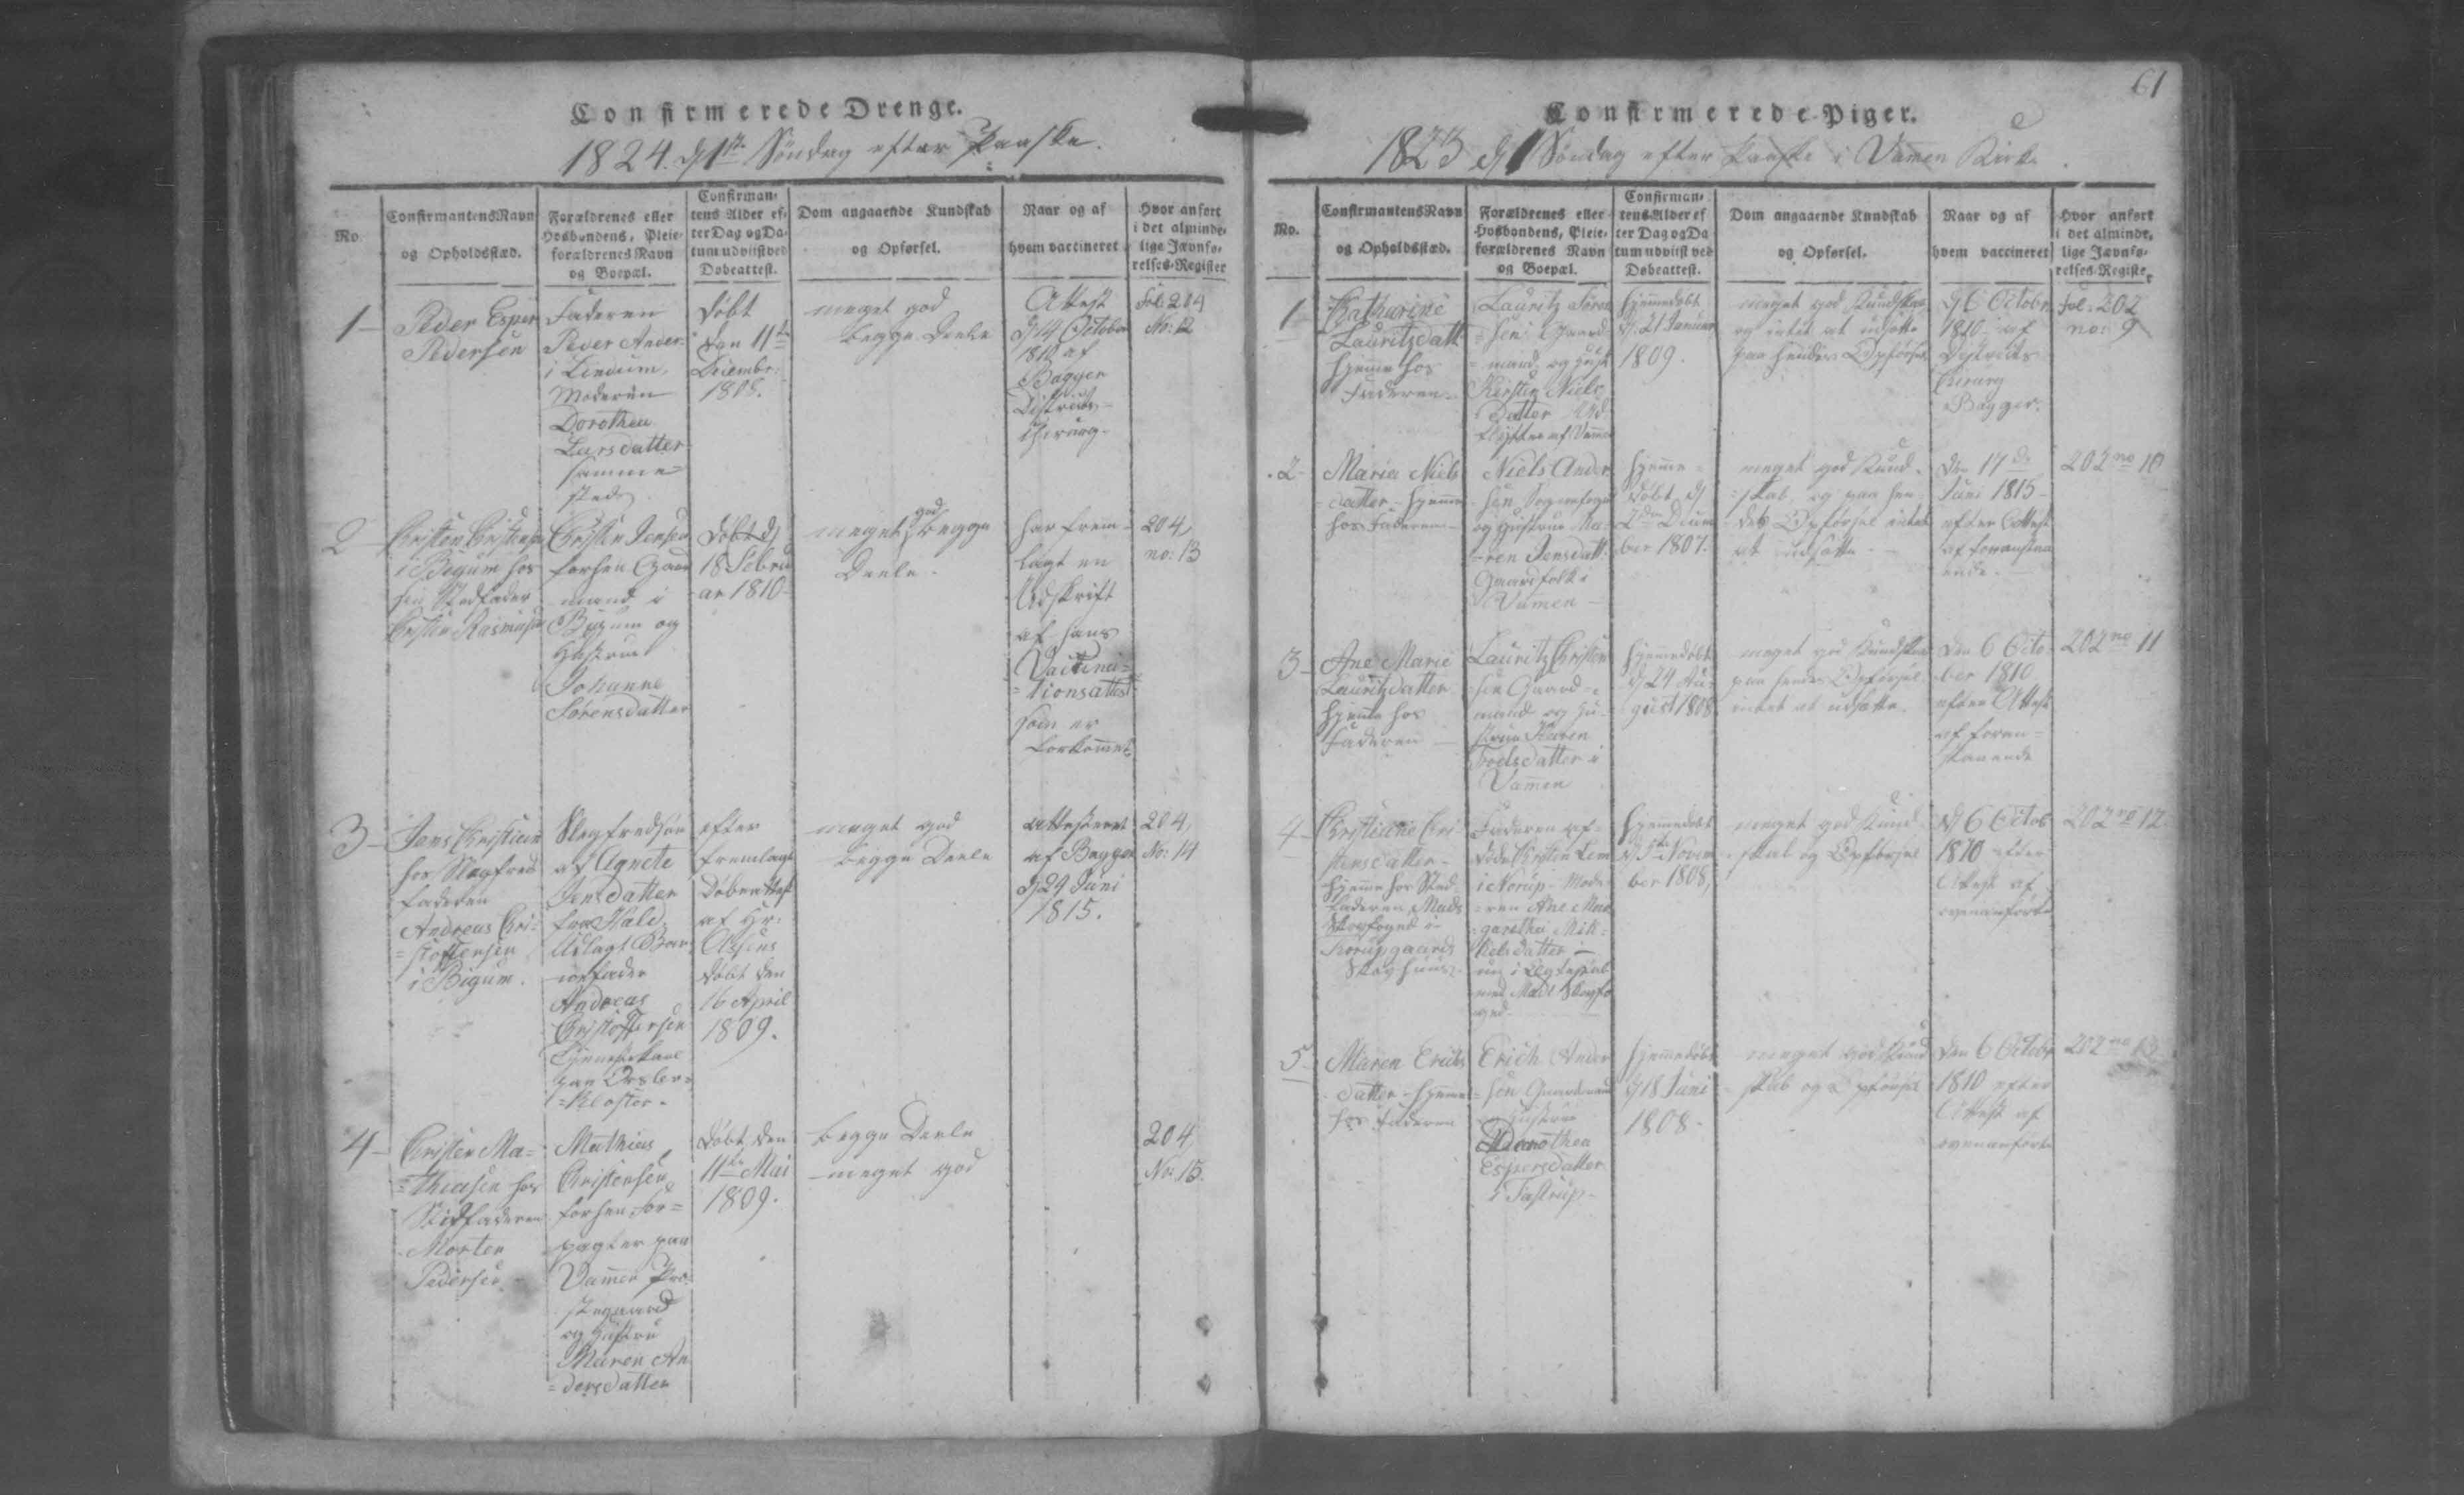 Confirmerede Drenge.
1824. d 1ste Söndag efter Paaske.
No.
Confirmantens Navn
og Opholdssted.
Forældrenes eller
Hosbondens, Pleie-
forældrenes Navn
og Boepæl.
Confirman-
tens Alder ef-
ter Dag og Da-
tum udviist ved
Døbeattest.
Dom angaaende Kundskab
og Opførsel.
Naar og af
hvem vaccineret
Hvor anført
i det alminde-
lige Jævnfø-
relses-Register
1
Peder Esper
Pedersen
Faderen
Peder Ander-
i Lindum,
Moderen
Dorothea
Larsdatter
samme-
steds
døbt
den 11te
Decembr:
meget god
begge Deele
Attest
d 14 October
1810 af
Bagger
Districts-
Chirurg.
Fol: 204
No: 12
2
Christen Christensen
i Bigum hos
sin Stedfader
Christen Rasmusen
Christen Jensen
forhen Gaard
mand i
Bigum og
Hustrue
Johanne
Sørensdatter
døbt d
18 Febru
ar 1810
meget god begge
Deele.
har frem-
lagt en
Udskrift
af hans
Vaccina-
tionsattest
som er
bortkommet
204,
no: 13
3
Jens Christian
hos Slegfred
faderen
Andreas Chri-
stoffersen
i Bigum.
Slegfredsøn
af Agnete
Jensdatter
fra Hald,
Udlagt Barne
fader
Andreas
Christoffersen
Tjenestekarl
paa Ørslev-
Kloster.
efter
fremlagt
Døbeattest
af Hr:
døbt den
16 April
1809.
meget god
begge Deele
attesteret
af Bagger
d 29 Juni
1815.
204,
No: 14
4
Christen Ma-
thiasen hos
Stedfaderen
Morten
Pedersen
Mathias
Christensen
forhen For-
pagter paa
Vammen Præ-
stegaard
og Hustru
Maren An-
dersdatter
døbt den
11te Mai
1809.
begge Deele
meget god
204
No: 15.
61
Confirmerede Piger.
1823 d 1 Söndag efter Paaske i Vamen Kirke
No.
Confirmantens Navn
og Opholdssted.
Forældrenes eller
Hosbondens, Pleie-
forældrenes Navn
og Boepæl.
Confirman-
tens Alder ef
ter Dag og Da
tum udviist ved
Døbeattest.
Dom angaaende Kundskab
og Opførsel.
Naar og af
hvem vaccineret
Hvor anført
i det alminde-
lige Jævnfø-
relses-Register
1
Katharine
Lauritzdatt
hjemme hos
Faderen
Lauritz Søren
sen Gaard-
mand og Hust
Kirsten Niels
Datter
af Vamme
hjemmedøbt
d: 21 Januar
1809.
meget god Kundskab
og intet at udsætte
paa hendes Opførsel
d 6 Octobr
1810 af
Districts
Chirurg
Bagger.
Fol: 202
no: 9
2
Maria Niels
datter hjemme
hos Faderen
Niels Ander
sen Sognefoged
og Hustrue Ma-
ren Jensdatt:
Gaardfolk i
Vamen
hjemme-
døbt d
2den Decem
ber 1807.
meget god Kund-
skab, og paa hen-
des Opførsel intet
at udsætte
den 17de
Juni 1815
efter Attest
af foranstaa
ende.
202 no 10
3
Ane Marie
Lauritzdatter
hjemme hos
Faderen
Lauritz Christen
sen Gaard-
mand og Hu-
strue Karen
Troelsdatter i
Vamen
hjemmedøbt
d 24 Au-
gust 1808
meget god Kundskab
paa hendes Opførsel
intet at udsætte.
den 6 Octo-
ber 1810
efter Attest
af foran-
staaende
202 no 11
4
Christiane Chri-
stensdatter
hjemme hos Sted-
faderen Mads
Skovfoged i
Norupgaards
Skovhuus.
Faderen af-
døde Christen Lem
i Norup. Mode-
ren Ane Mar
garetha Mik-
kelsdatter
nu i Ægteskab
med Mads Skovfo
ged
hjemmedøbt
d 5te Novem
ber 1808,
meget god Kund
skab og Opførsel
d 6 Octob
1810 efter
Attest af
ovenanførte
202 no 12
5
Maren Erichs
datter hjemme
hos Faderen
Erich Ander
sen Gaardmand
og Hustrue
Dorothea
Espersdatter
i Tastrup
hjemmedøbt
d 18 Juni
1808
meget god Kund
skab og Opførsel
den 6 Octobr
1810 efter
Attest af
ovenanførte
202 no 13